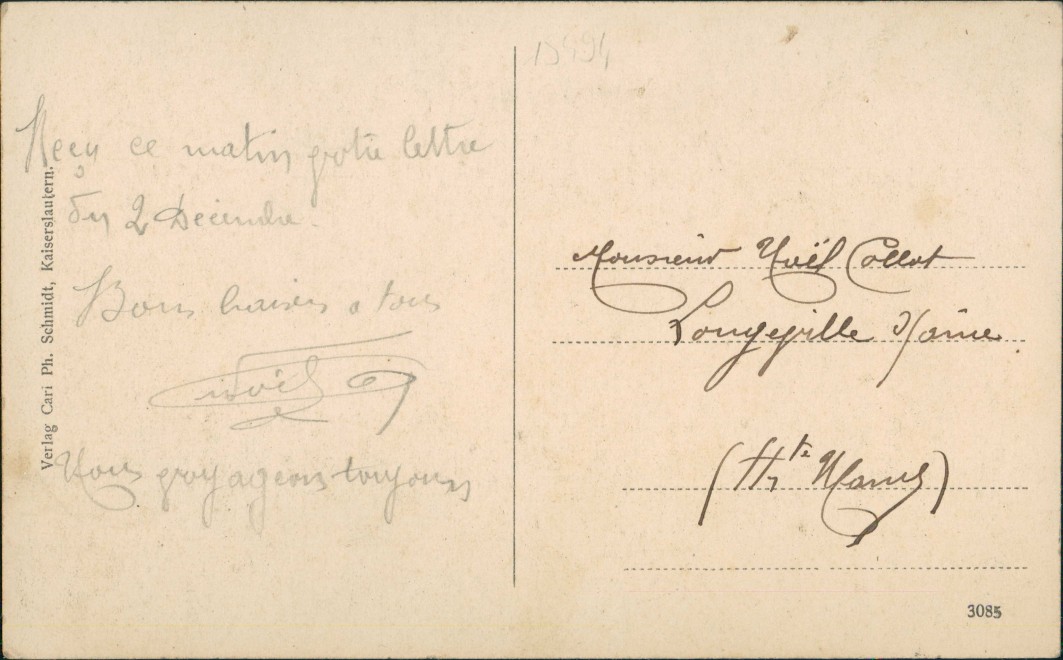 Reçu ce matin votre lettre
du 2 Décembre.
Bons baisers a tous
Noël
Nous voyageons toujours
Verlag Carl Ph. Schmidt, Kaiserslautern.
Monsieur Noël Collot
Longeville s/ Laine
(Hte Marne)
3085